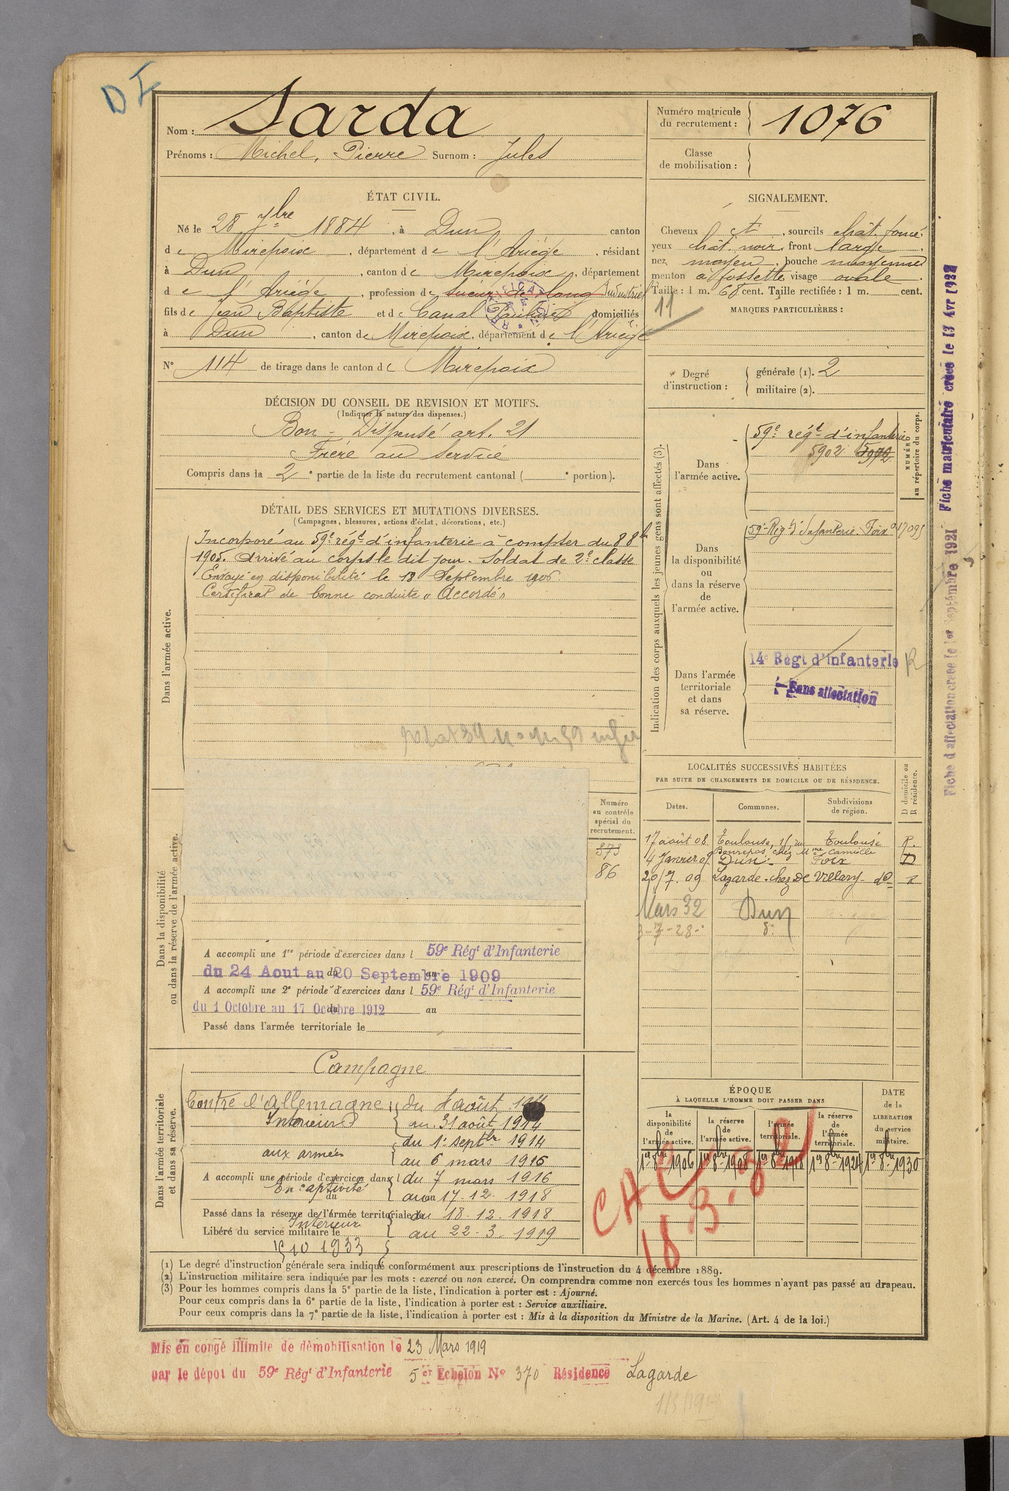 DI
Nom : Sarda
Prénoms : Michel, Pierre Surnom : Jules
Numéro matricule du recrutement : 1076
Classe de mobilisation :
ÉTAT CIVIL.
Né le 28 7bre 1884, à Dun canton
de Mirepoix, département de l'Ariège, résidant
à Dun, canton de Mirepoix, département
de l'Ariège, profession de scieur de long Industriel
fils de Jean Baptiste et de Canal domiciliés
à Dun, canton de Mirepoix, département de l'Ariège
N° 114 de tirage dans le canton de Mirepoix
SIGNALEMENT.
Cheveux et, sourcils chât. foncé
yeux chât. noir, front large,
nez moyen, bouche moyenne
menton à fossette visage ovale
Taille : 1 m. 68 cent. Taille rectifiée : 1 m. cent.
11
MARQUES PARTICULIÈRES :
Degré d'instruction : générale (1). 2
militaire (2).
DÉCISION DU CONSEIL DE REVISION ET MOTIFS.
(Indiquer la nature des dispenses.)
Bon - Dispensé art. 21
Frère au service
Compris dans la 2e partie de la liste du recrutement cantonal ( e portion).
DÉTAIL DES SERVICES ET MUTATIONS DIVERSES.
(Campagnes, blessures, actions d'éclat, décorations, etc.)
Dans l'armée active.
Incorporé au 59e régt d'infanterie à compter du 8 8b
1905. Arrivé au corps le dit jour. Soldat de 2e classe
Envoyé en disponibilité le 18 Septembre 1906
Certificat de bonne conduite "Accordé"
Indication des corps auxquels les jeunes gens sont affectés (3).
NUMÉRO au répertoire du corps.
Dans l'armée active.
59e régt d'infanterie
5902 5972
Dans la disponibilité ou dans la réserve de l'armée active.
59e Rég d'Infanterie Foix
Dans l'armée territoriale et dans sa réserve.
14e Régt d'Infanterie R
Sans affectation
Fiche matriculaire créée le 13 Avr 1932
Fiche d'affectation créée le 1er Septembre 1921
LOCALITÉS SUCCESSIVES HABITÉES
PAR SUITE DE CHANGEMENTS DE DOMICILE OU DE RÉSIDENCE.
Dates. Communes. Subdivisions de région. D domicile ou R résidence.
17 août 08 Toulouse, Toulouse R.
Bonrepos, chez Mme Camille
4 Janvier 09 Dun Foix D
20/7.09 Lagarde chez De Villary do R
Mars 32 Dun
3-7-28
Dans la disponibilité ou dans la réserve de l'armée active.
Numéro au contrôle spécial du recrutement.
873
86
A accompli une 1re période d'exercices dans l 59e Régt d'Infanterie
du 24 Aout au 20 Septembre 1909
A accompli une 2e période d'exercices dans l 59e Régt d'Infanterie
du 1 Octobre au 17 Octobre 1912 au
Passé dans l'armée territoriale le
Dans l'armée territoriale et dans sa réserve.
Campagne
Contre l'Allemagne du 4 août 1914
Intérieur au 31 août 1914
du 1er septbre 1914
aux armées au 6 mars 1916
A accompli une période d'exercices dans l du 7 mars 1916
En captivité du au 17.12.1918
Passé dans la réserve de l'armée territoriale le du 18.12.1918
Intérieur
Libéré du service militaire le au 22-3-1919
15 10 1933
ÉPOQUE
À LAQUELLE L'HOMME DOIT PASSER DANS
la disponibilité de l'armée active.
la réserve de l'armée active.
l'armée territoriale.
la réserve de l'armée territoriale.
DATE de la LIBÉRATION du service militaire.
1er 8bre 1906 1er 8bre 1908 1er 8bre 1918 1er 8bre 1924 1er 8bre 1930
18.3.32
(1) Le degré d'instruction générale sera indiqué conformément aux prescriptions de l'instruction du 4 décembre 1889.
(2) L'instruction militaire sera indiquée par les mots : exercé ou non exercé. On comprendra comme non exercés tous les hommes n'ayant pas passé au drapeau.
(3) Pour les hommes compris dans la 5e partie de la liste, l'indication à porter est : Ajourné.
Pour ceux compris dans la 6e partie de la liste, l'indication à porter est : Service auxiliaire.
Pour ceux compris dans la 7e partie de la liste, l'indication à porter est : Mis à la disposition du Ministre de la Marine. (Art. 4 de la loi.)
Mis en congé illimité de démobilisation le 23 Mars 1919
par le dépôt du 59e Régt d'Infanterie 5er Echelon No 370 Résidence Lagarde